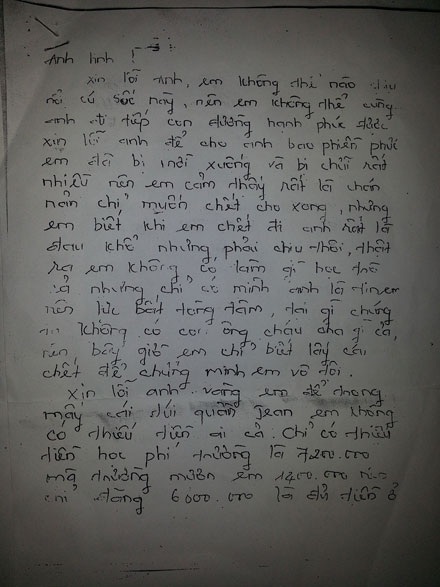 Anh linh !
Xin lỗi anh, em không thể nào chịu
nỗi cú sốc này, nên em không thể cùng
anh đi tiếp con đường hạnh phúc được
xin lỗi anh để cho anh bao phiền phức
em đã bị nói xuống và bị chửi rất
nhiều nên em cảm thấy rất là chán
nản chỉ muốn chết cho xong, nhưng
em biết khi em chết đi anh rất là
đau khổ nhưng phải chịu thôi, thật
ra em không có làm gì học
cả nhưng chỉ có mình anh là tin em
nên lực bất tòng tâm, tại gì chúng
không có coi ông cháu cha gì cả,
nên bây giờ em chỉ biết lấy cái
chết để chứng minh em vô tội.
Xin lỗi anh vâng em để trong
mấy cái túi quần Jean em không
có thiếu tiền ai cả. Chỉ có thiếu
tiền học phí trường là 7.200.000
mà trường mượn em 1.400.000
chỉ đóng 6000.000 là đủ tiền ở